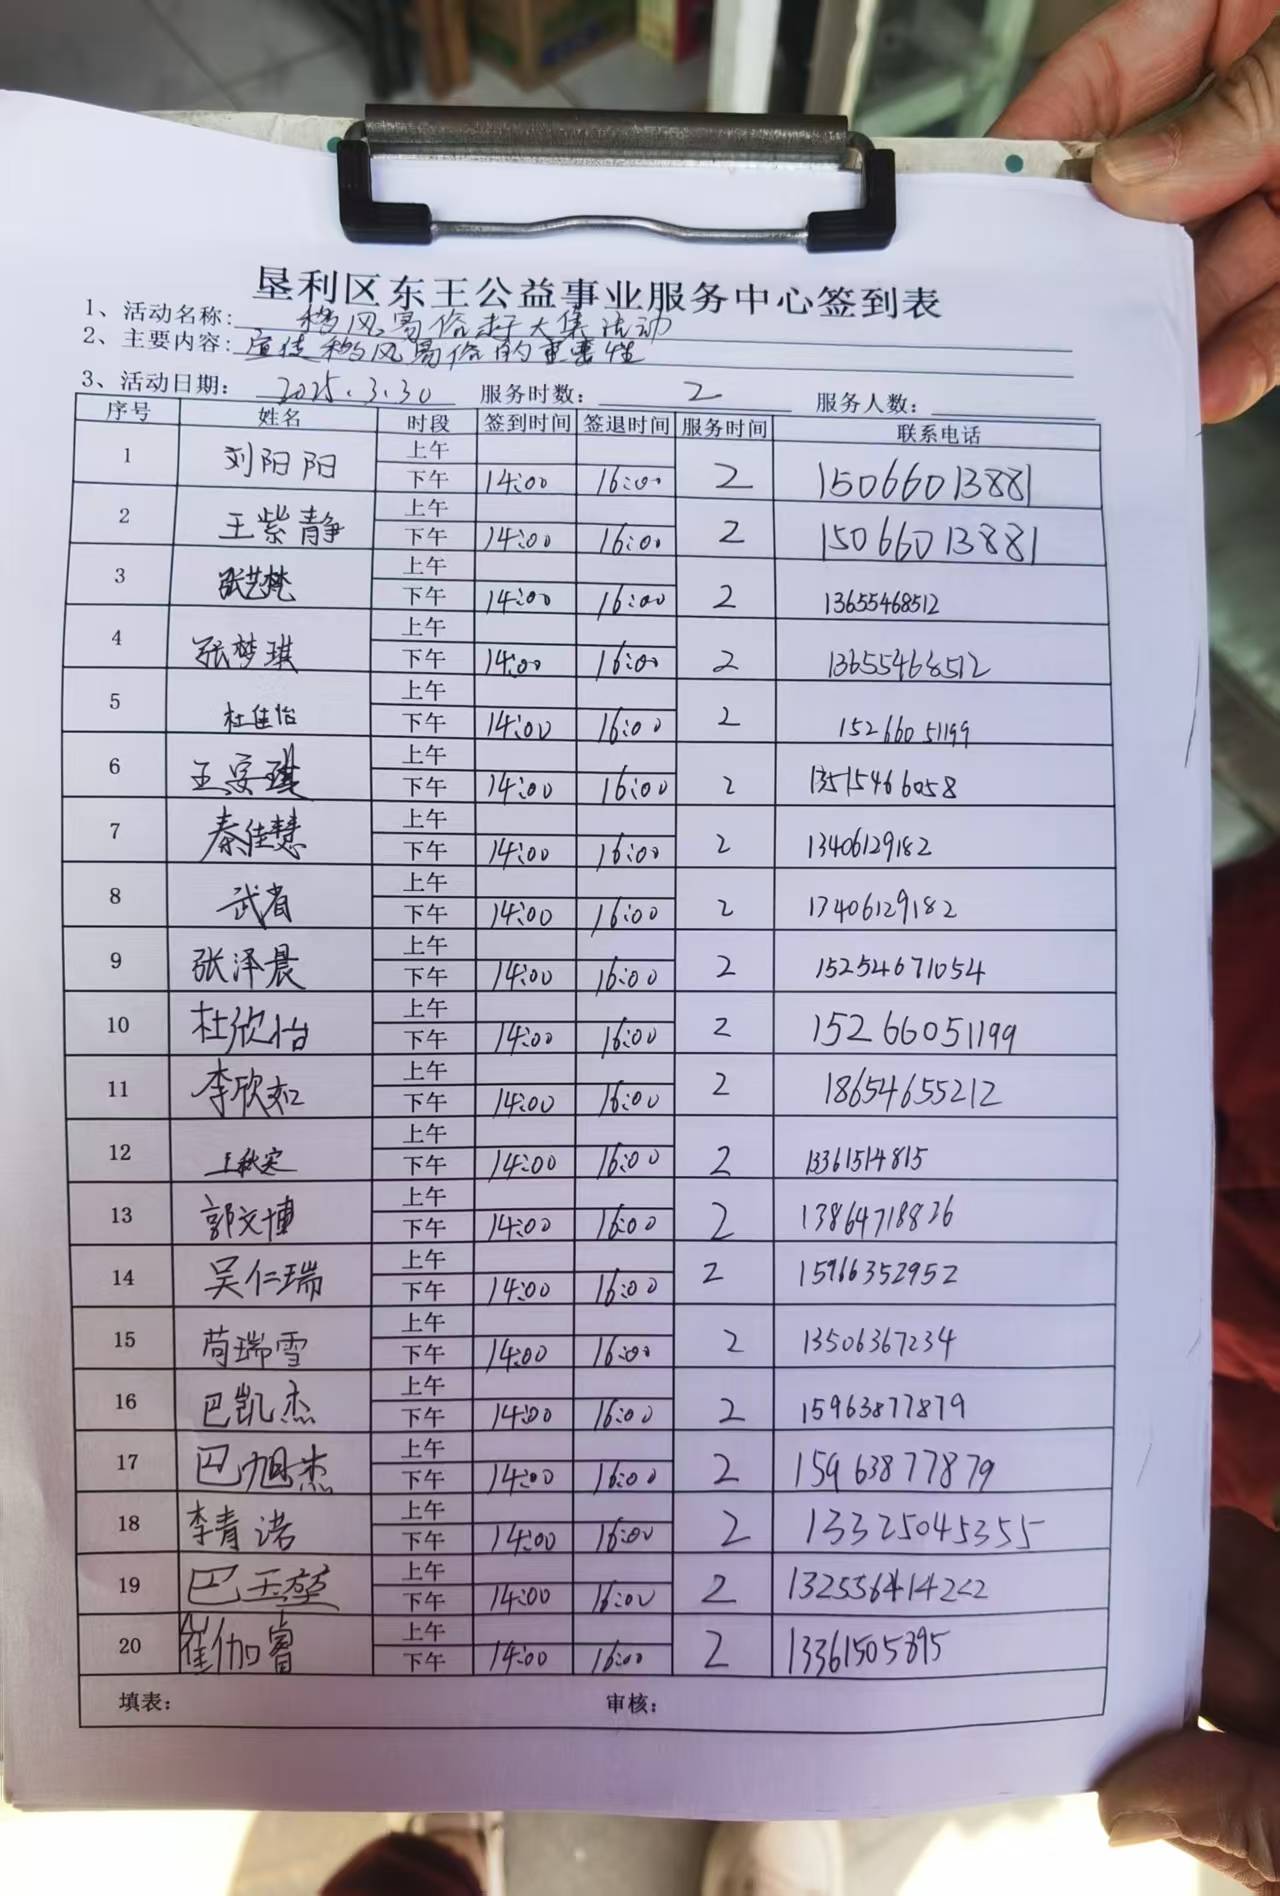 垦利区东王公益事业服务中心签到表
1、活动名称: 移风易俗赶大集活动
2、主要内容: 宣传移风易俗的重要性
3、活动日期: 2025.3.30 服务时数: 2 服务人数:
序号 姓名 时段 签到时间 签退时间 服务时间 联系电话
1 刘阳阳 上午 下午 14:00 16:00 2 15066013881
2 王紫静 上午 下午 14:00 16:00 2 15066013881
3 张艺梵 上午 下午 14:00 16:00 2 13655468512
4 张梦琪 上午 下午 14:00 16:00 2 13655468512
5 杜佳怡 上午 下午 14:00 16:00 2 15266051199
6 王安琪 上午 下午 14:00 16:00 2 13515466058
7 秦佳慧 上午 下午 14:00 16:00 2 13406129182
8 武省 上午 下午 14:00 16:00 2 17406129182
9 张泽晨 上午 下午 14:00 16:00 2 15254671054
10 杜欣怡 上午 下午 14:00 16:00 2 15266051199
11 李欣如 上午 下午 14:00 16:00 2 18654655212
12 上午 下午 14:00 16:00 2 13361514815
13 郭文博 上午 下午 14:00 16:00 2 13864718826
14 吴仁瑞 上午 下午 14:00 16:00 2 15966352952
15 苘瑞雪 上午 下午 14:00 16:00 2 13506367234
16 巴凯杰 上午 下午 14:00 16:00 2 15963877879
17 巴旭杰 上午 下午 14:00 16:00 2 15963877879
18 李青诺 上午 下午 14:00 16:00 2 13325045355
19 巴玉堃 上午 下午 14:00 16:00 2 13255641422
20 崔伽睿 上午 下午 14:00 16:00 2 13361505395
填表: 审核: